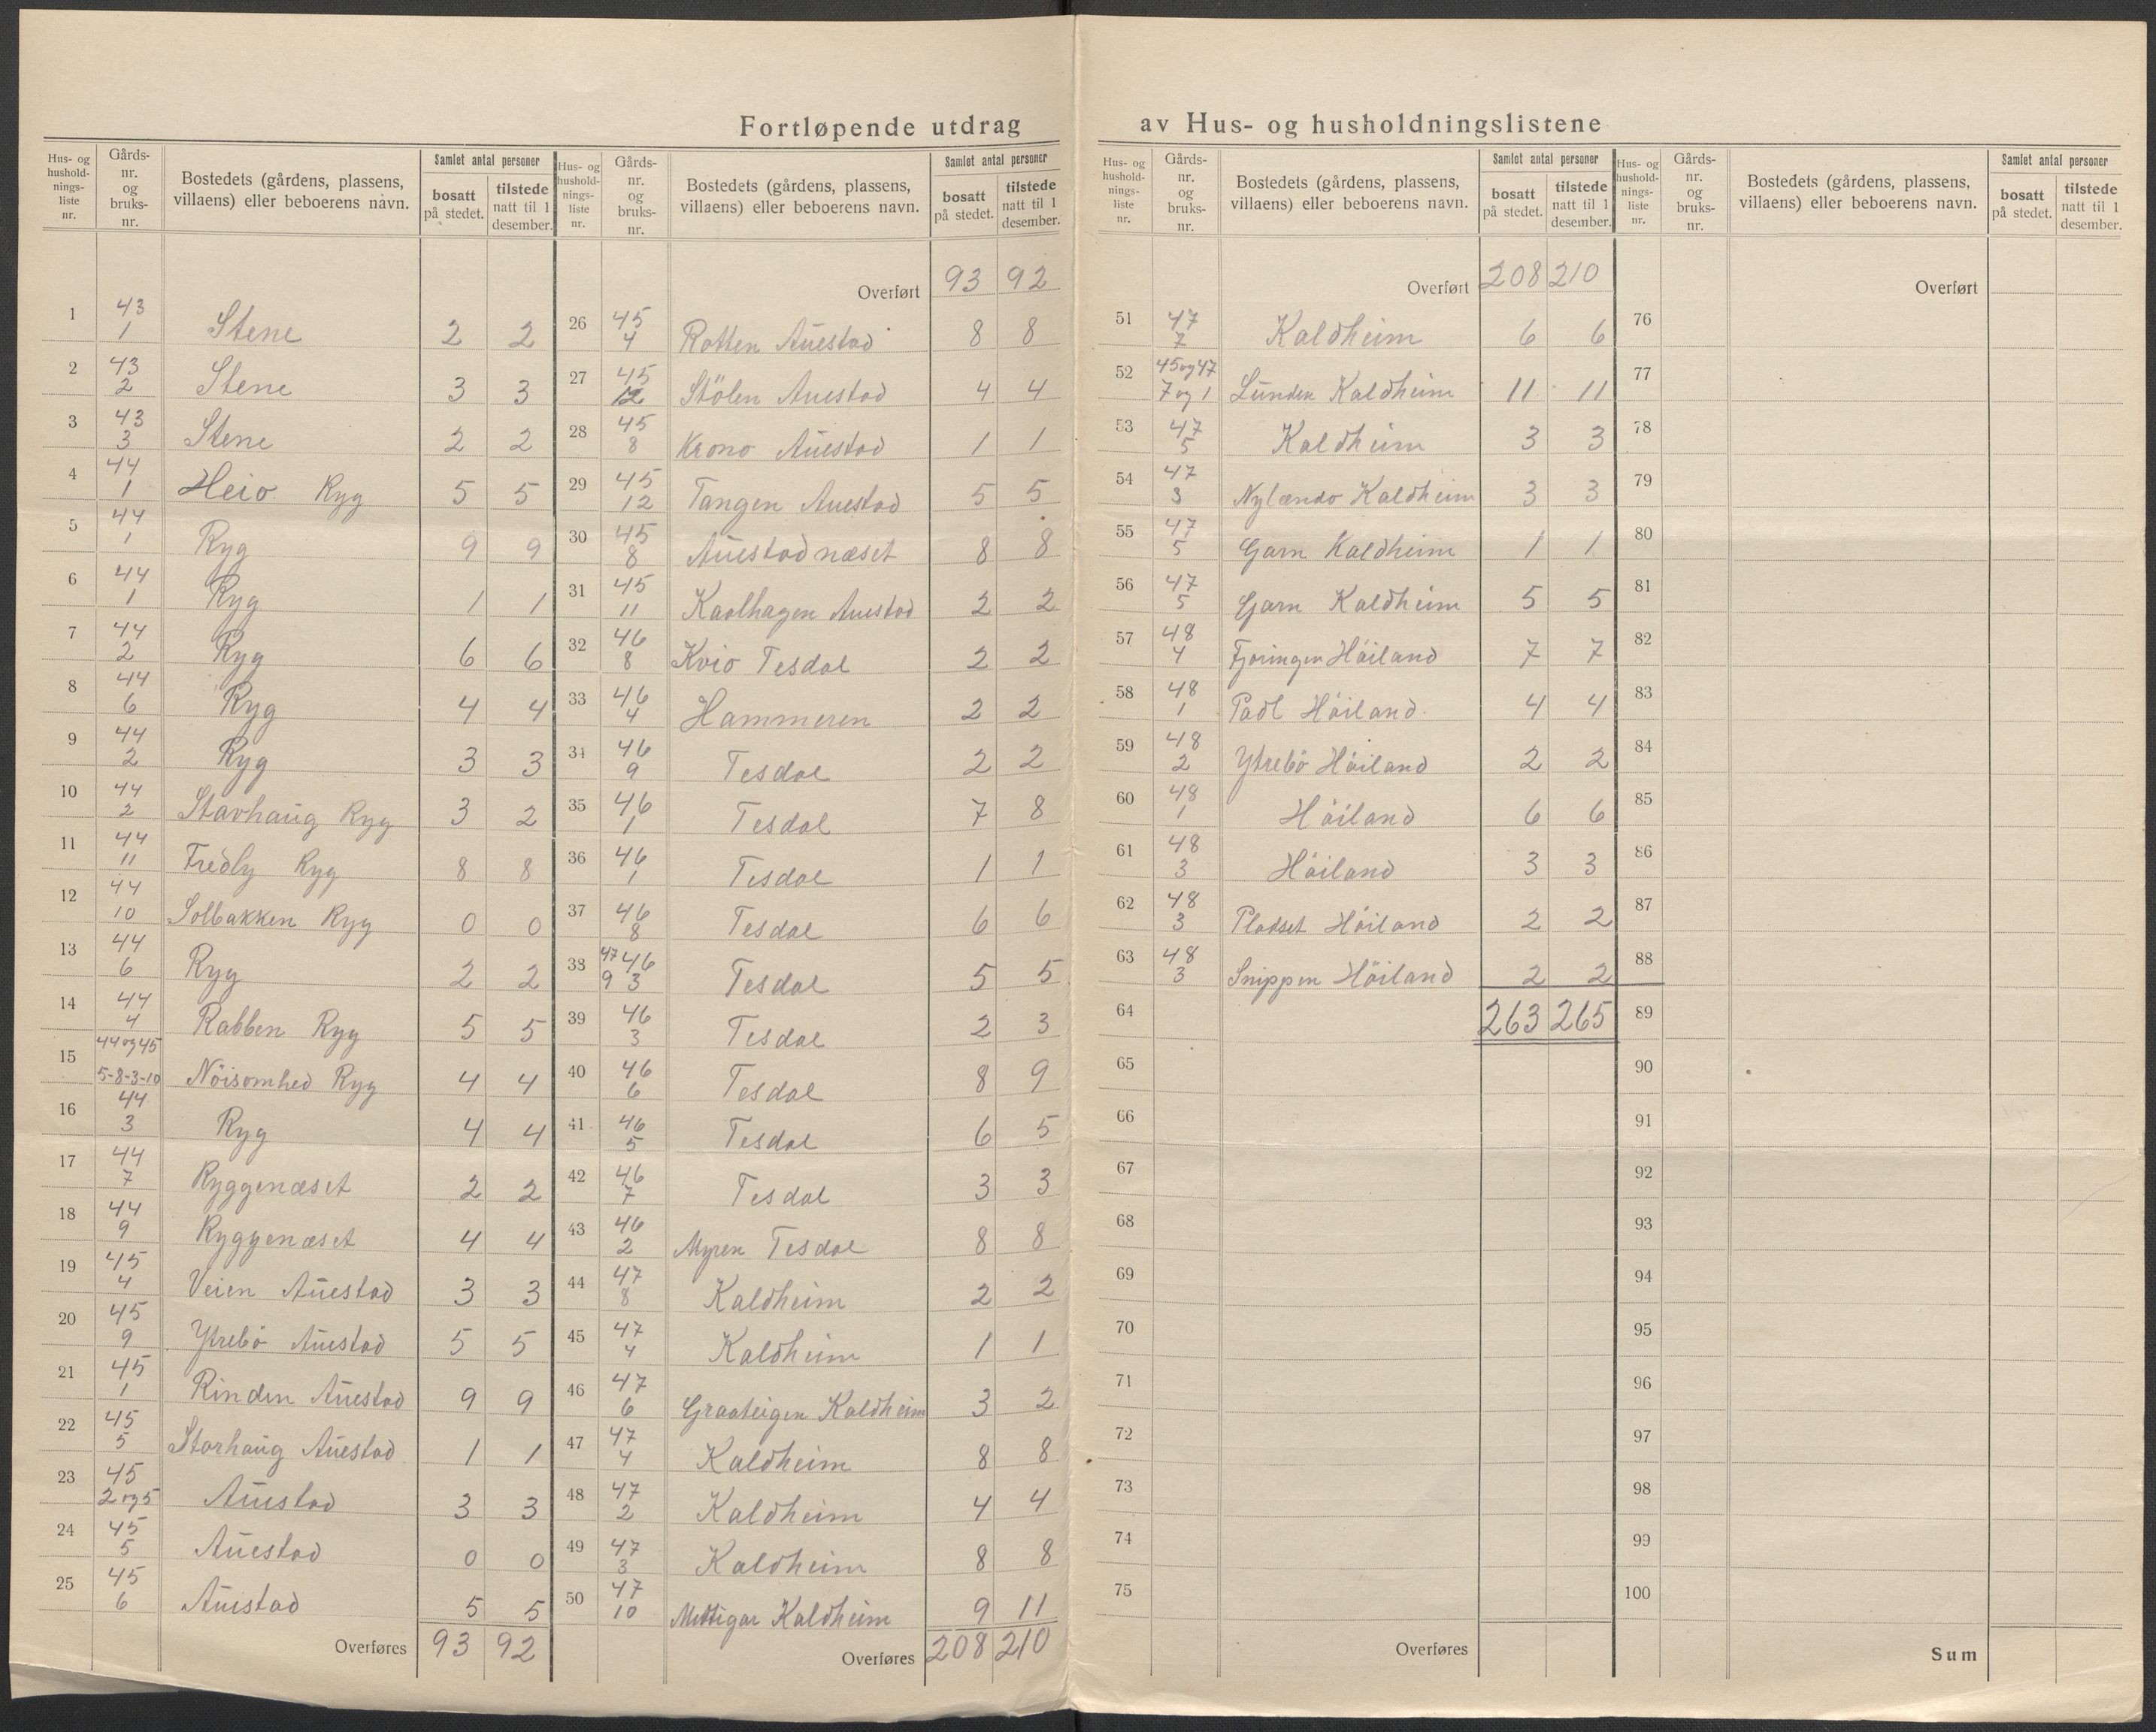 Fortløpende utdrag av Hus- og husholdningslistene
Hus- og husholdnings-liste nr. | Gårds-nr. og bruks-nr. | Bostedets (gårdens, plassens, villaens) eller beboerens navn. | Samlet antal personer bosatt på stedet. | tilstede natt til 1 desember.
1 43 1 Stene 2 2
2 43 2 Stene 3 3
3 43 3 Stene 2 2
4 44 1 Heio Ryg 5 5
5 44 1 Ryg 9 9
6 44 1 Ryg 1 1
7 44 2 Ryg 6 6
8 44 6 Ryg 4 4
9 44 2 Ryg 3 3
10 44 2 Stavhaug Ryg 3 2
11 44 11 Fredly Ryg 8 8
12 44 10 Solbakken Ryg 0 0
13 44 6 Ryg 2 2
14 44 4 Rabben Ryg 5 5
15 44 og 45 5-8-3-10 Nöisomhed Ryg 4 4
16 44 3 Ryg 4 4
17 44 7 Ryggenæset 2 2
18 44 9 Ryggenæset 4 4
19 45 4 Veien Auestad 3 3
20 45 9 Ytrebö Auestad 5 5
21 45 1 Rinden Auestad 9 9
22 45 5 Storhaug Auestad 1 1
23 45 2 og 5 Auestad 3 3
24 45 5 Auestad 0 0
25 45 6 Auestad 5 5
Overføres 93 92
Hus- og husholdnings-liste nr. | Gårds-nr. og bruks-nr. | Bostedets (gårdens, plassens, villaens) eller beboerens navn. | Samlet antal personer bosatt på stedet. | tilstede natt til 1 desember.
Overført 93 92
26 45 4 Rotten Auestad 8 8
27 45 12 Stölen Auestad 4 4
28 45 8 Krono Auestad 1 1
29 45 12 Tangen Auestad 5 5
30 45 8 Auestadnæset 8 8
31 45 11 Kaolhagen Auestad 2 2
32 46 8 Kvio Tesdal 2 2
33 46 4 Hammeren 2 2
34 46 9 Tesdal 2 2
35 46 1 Tesdal 7 8
36 46 1 Tesdal 1 1
37 46 8 Tesdal 6 6
38 47 46 9 3 Tesdal 5 5
39 46 3 Tesdal 2 3
40 46 6 Tesdal 8 9
41 46 5 Tesdal 6 5
42 46 7 Tesdal 3 3
43 46 2 Myren Tesdal 8 8
44 47 8 Kaldheim 2 2
45 47 4 Kaldheim 1 1
46 47 6 Graateigen Kaldheim 3 2
47 47 4 Kaldheim 8 8
48 47 2 Kaldheim 4 4
49 47 3 Kaldheim 8 8
50 47 10 Kaldheim 9 11
Overføres 208 210
Hus- og husholdnings-liste nr. | Gårds-nr. og bruks-nr. | Bostedets (gårdens, plassens, villaens) eller beboerens navn. | Samlet antal personer bosatt på stedet. | tilstede natt til 1 desember.
Overført 208 210
51 47 7 Kaldheim 6 6
52 45 og 47 7 og 1 Lunden Kaldheim 11 11
53 47 5 Kaldheim 3 3
54 47 3 Nylændo Kaldheim 3 3
55 47 5 Garn Kaldheim 1 1
56 47 5 Garn Kaldheim 5 5
57 48 4 Fjoringen Höiland 7 7
58 48 1 Padl Höiland 4 4
59 48 2 Ytrebö Höiland 2 2
60 48 1 Höiland 6 6
61 48 3 Höiland 3 3
62 48 3 Pladset Höiland 2 2
63 48 3 Snippen Höiland 2 2
64 263 265
65
66
67
68
69
70
71
72
73
74
75
Overføres
Hus- og husholdnings-liste nr. | Gårds-nr. og bruks-nr. | Bostedets (gårdens, plassens, villaens) eller beboerens navn. | Samlet antal personer bosatt på stedet. | tilstede natt til 1 desember.
Overført
76
77
78
79
80
81
82
83
84
85
86
87
88
89
90
91
92
93
94
95
96
97
98
99
100
Sum